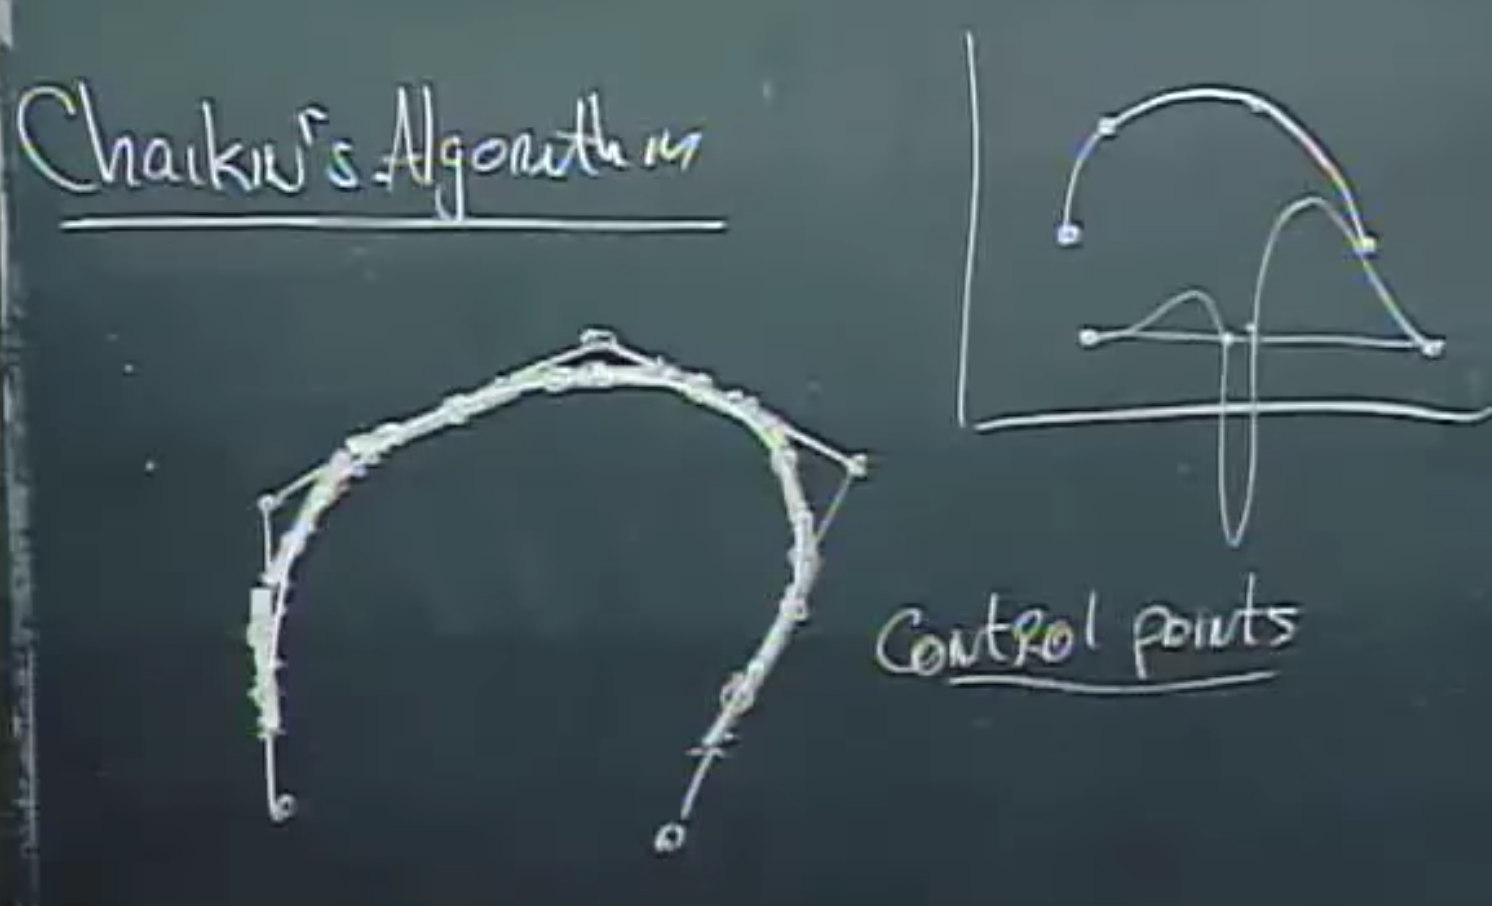 Chaikin's Algorithm
Control points